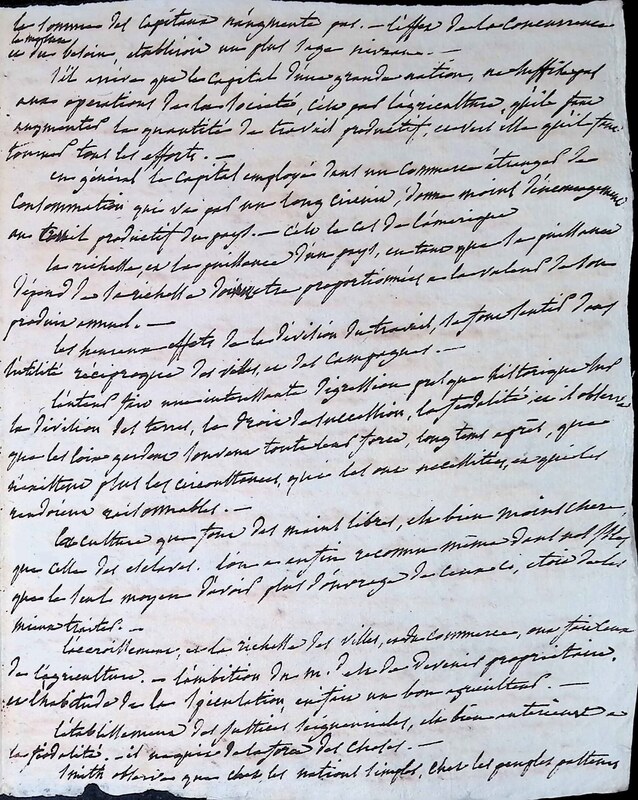 la somme des capitaux n'augmente pas. — l'effet de la concurrence
la meilleure
et du besoin, etabliroit un plus sage niveau. —
S'il arrive que le capital d'une grande nation, ne suffise pas
aux operations de la societé, c'est par l'agriculture, qu'elle fera
augmenter la quantité de travail productif, c'est vers elle qu'il faut
tourner tous les efforts. —
en général le capital employé dans un commerce étranger de
Consommation qui va par un long circuit, donne moins d'encouragement
au travail productif du pays. — c'est le cas de l'amerique
La richesse, et la puissance d'un pays, en tant que la puissance
dépend de la richesse doivent etre proportionnées a la valeur de son
produit annuel. —
les heureux effets de la division du travail, se font sentir dans
l'utilité réciproque des villes, et des campagnes. —
L'auteur fait une interessante digression presque historique sur
la division des terres, le droit de succession, la féodalité, et il observe
que les loix gardent souvent toute leur force, long tems après, que
n'existent plus les circonstances, qui les ont necessitées, et qui les
rendoient raisonnables. —
La culture que font des mains libres, est bien moins chere,
que celle des esclaves. L'on a enfin reconnu même dans nos isles
que le seul moyen d'avoir plus d'ouvrage de ceux ci, etoit de les
mieux traiter. —
L'accroissement, et la richesse des villes, et du commerce, ont fait ceux
de l'agriculture. — l'ambition du m.d est de devenir propriétaire,
et l'habitude de la spéculation, en fait un bon agriculteur. —
L'établissement des justices seigneuriales, est bien antérieure a
la féodalité. — il naquit de la force des choses. —
Smith observe que chez les nations simples, chez les peuples pasteurs